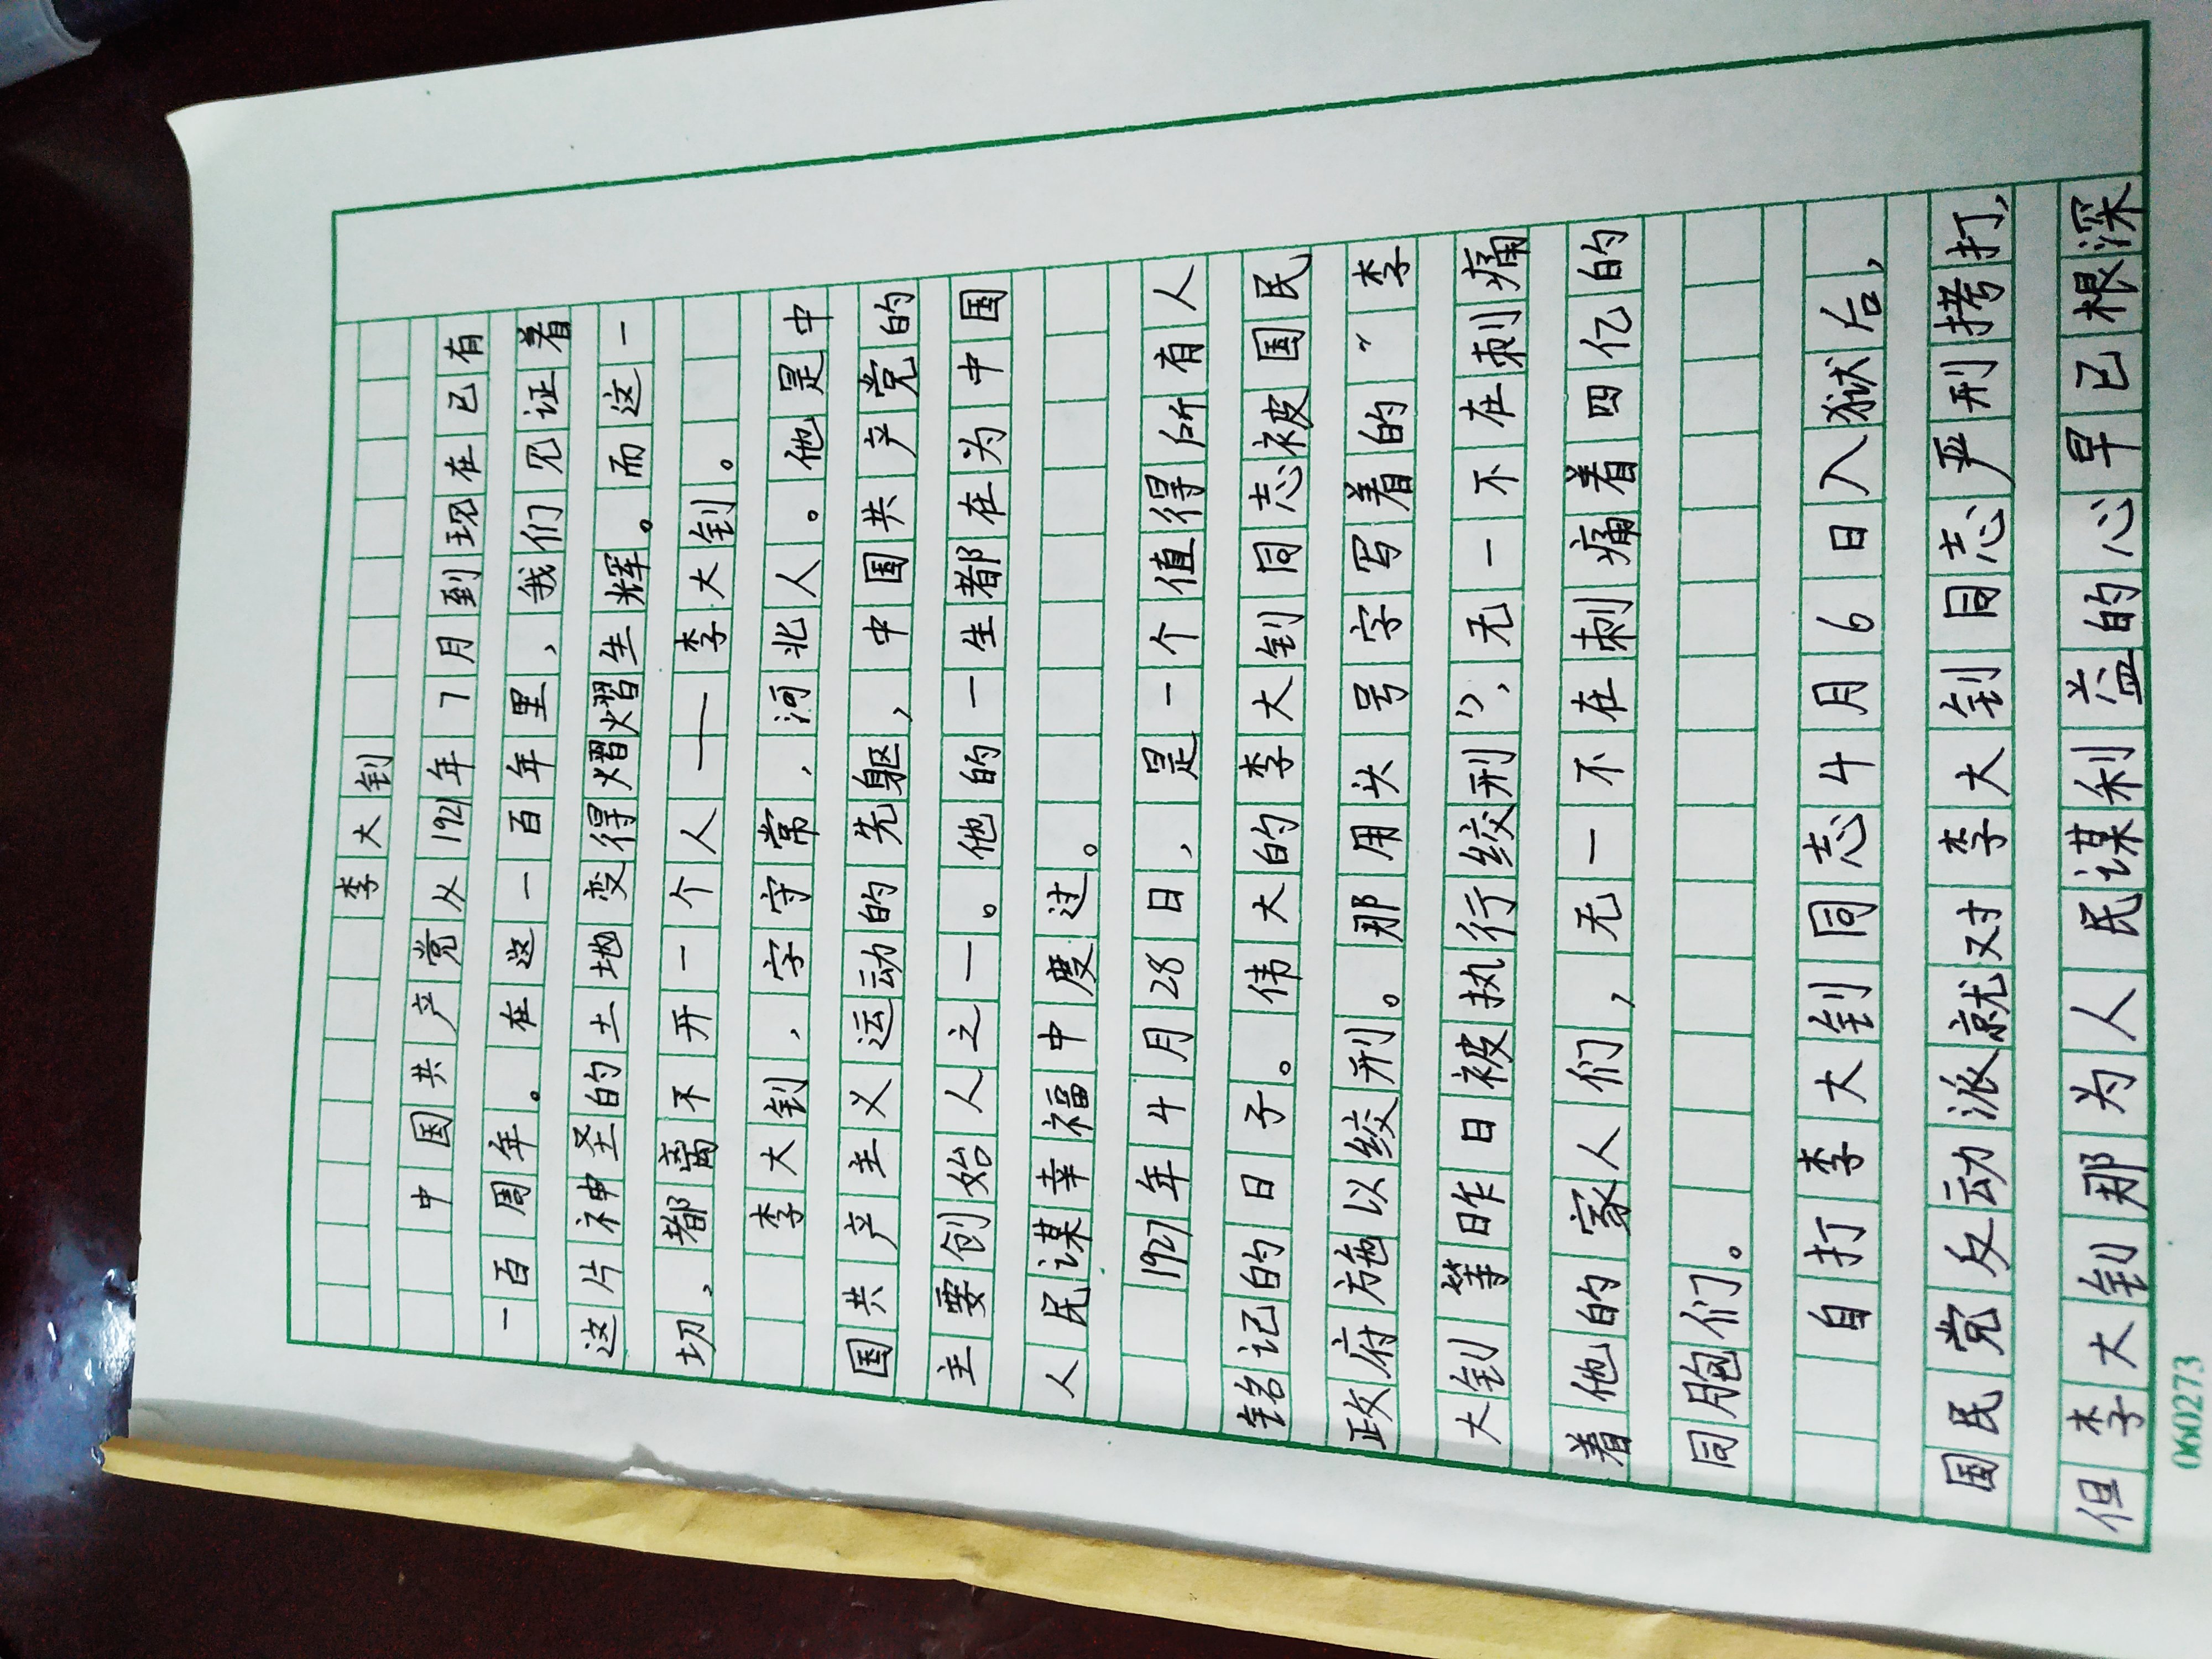 李大钊
中国共产党从1921年7月到现在已有
一百周年。在这一百年里,我们见证着
这片神圣的土地变得熠熠生辉。而这一
切,都离不开一个人——李大钊。
李大钊,字守常,河北人。他是中
国共产主义运动的先躯,中国共产党的
主要创始人之一。他的一生都在为中国
人民谋幸福中度过。
1927年4月28日,是一个值得所有人
铭记的日子。伟大的李大钊同志被国民
政府施以绞刑。那用头号字写着的“李
大钊等昨日被执行绞刑”,无一不在刺痛
着他的家人们,无一不在刺痛着四亿的
同胞们。
自打李大钊同志4月6日入狱后,
国民党反动派就对李大钊同志严刑拷打,
但李大钊那为人民谋利益的心早已根深
060273